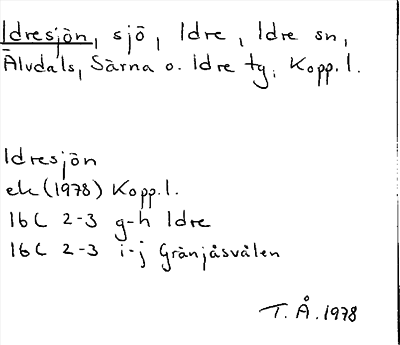 Idresjön, sjö, Idre, Idre sn,
Älvdals, Särna o. Idre tg, Kopp. l.
Idresjön
ek (1978) Kopp. l.
16C 2-3 g-h Idre
16C 2-3 i-j Gränjåsvålen
T. Å. 1978